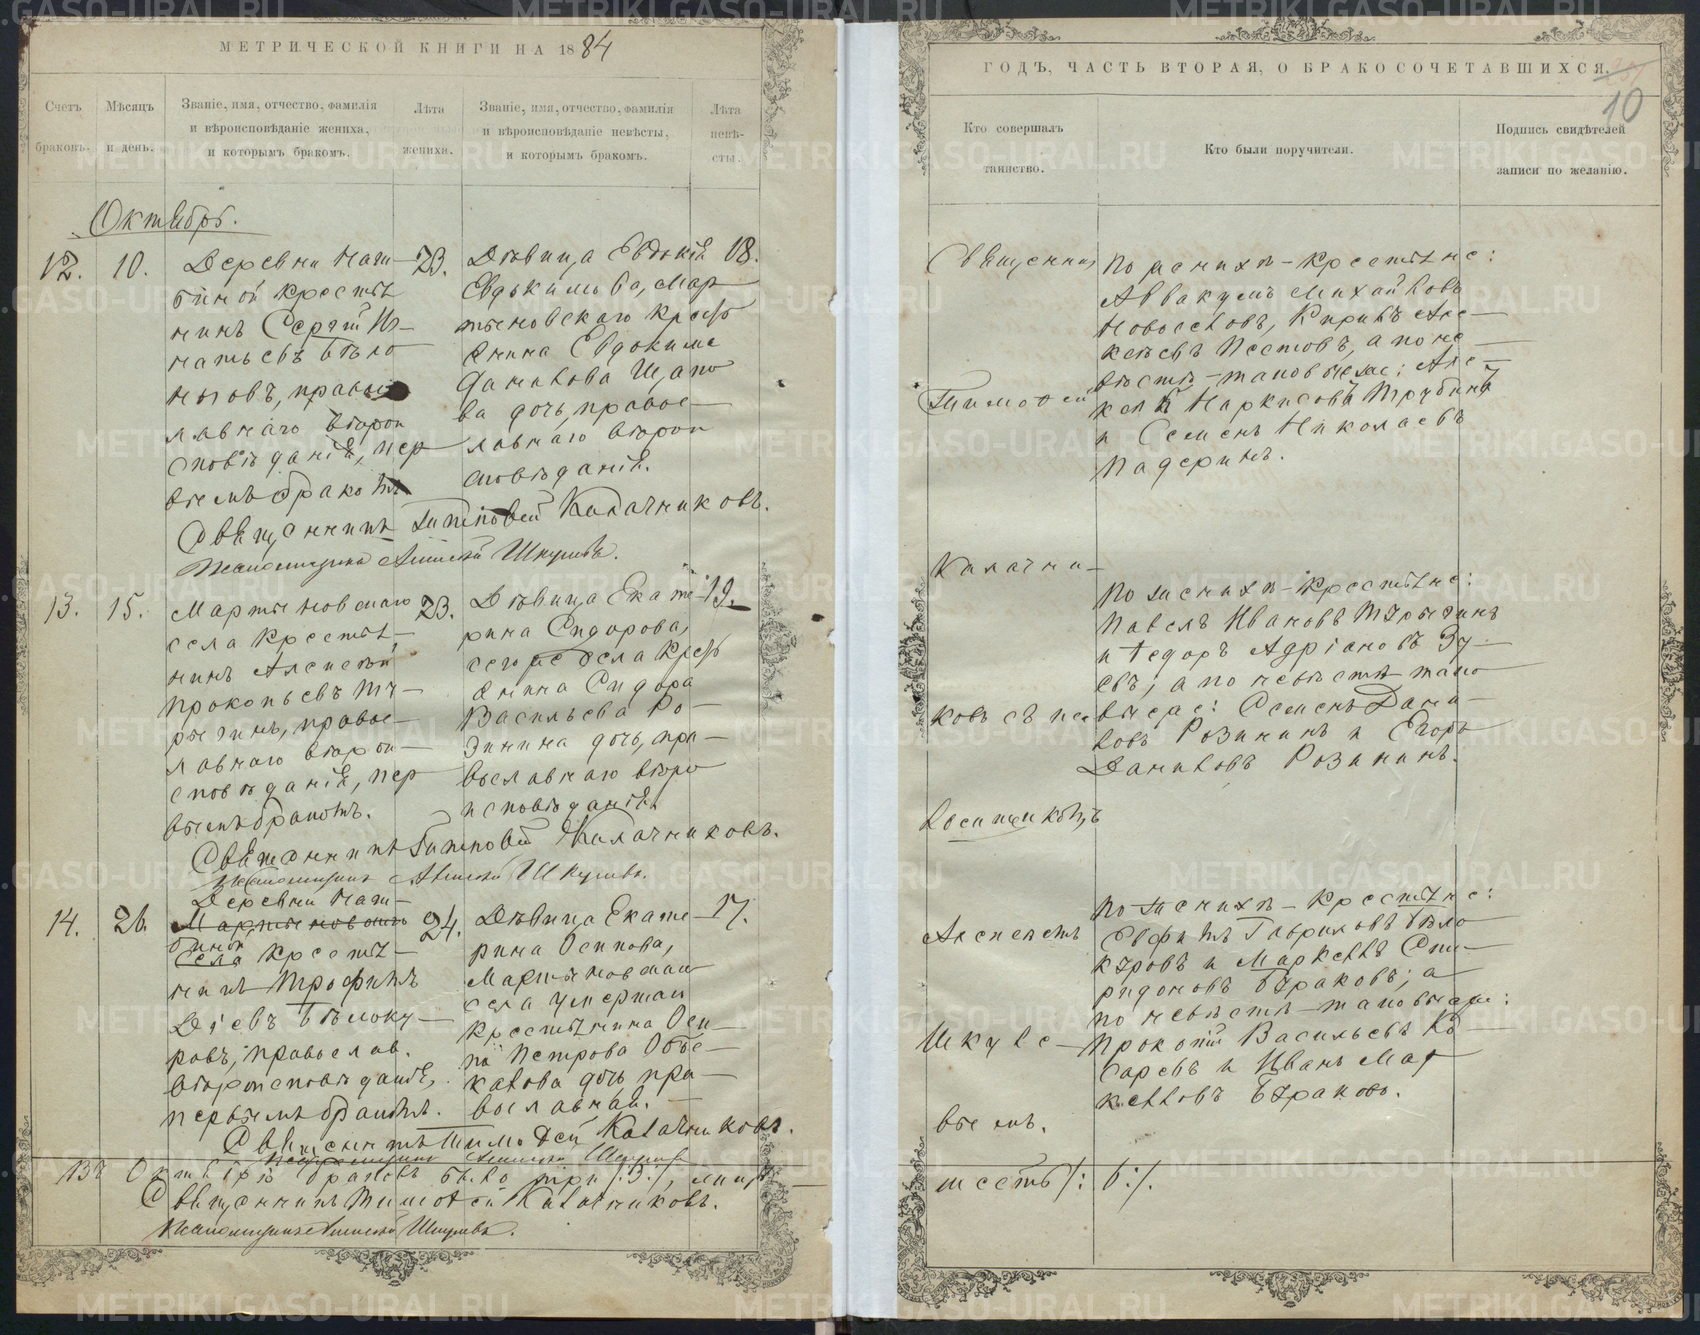 МЕТРИЧЕСКОЙ КНИГИ НА 1884
Счетъ браковъ.
Мѣсяцъ и день.
Званіе, имя, отчество, фамилія и вѣроисповѣданіе жениха, и которымъ бракомъ.
Лѣта жениха.
Званіе, имя, отчество, фамилія и вѣроисповѣданіе невѣсты, и которымъ бракомъ.
Лѣта невѣ-сты.
Октябрь.
12.
10.
Деревни
крестья
нинъ Сергій Иг-
натьевъ Бѣло
православ
лавнаго вѣрои
сповѣданія, пер
вымъ бракомъ
23.
Дѣвица Евдокія
Евдокимова, Мар
тыновскаго кресть
янина Евдокима
Данилова Щапо
ва дочь, правос-
лавнаго вѣрои
сповѣданія.
18.
Священникъ Тимофей Калачниковъ.
Псаломщикъ Алексѣй Шкулевъ.
13.
15.
Мартыновскаго
села крестья-
нинъ Алексѣй
Прокопьевъ Т
рыгинъ, правос-
лавнаго вѣрои-
сповѣданія, пер
вымъ бракомъ.
23.
Дѣвица Екате-
рина Сидорова,
сего же села кресть
янина Сидора
Васильева Ро-
зинина дочь, пра-
вославнаго вѣро
исповѣданія.
19.
Священникъ Тимофей Калачниковъ.
Псаломщикъ Алексѣй Шкулевъ.
14.
26.
Деревни
Мартыновскаго
села крестья-
нинъ Трофимъ
Діевъ Бѣлоку-
ровъ, православ.
вѣроисповѣданія,
первымъ бракомъ.
24.
Дѣвица Екате-
рина Осипова,
Мартыновскаго
села умершаго
крестьянина Оси-
па Петрова Объе-
калова дочь пра-
вославная.
17.
Священникъ Тимофей Калачниковъ.
Псаломщикъ Алексѣй Шкулевъ
Въ Октябрѣ браковъ было три /:3:/,
Священникъ Тимофей Калачниковъ.
Псаломщикъ Алексѣй Шкулевъ.
ГОДЪ, ЧАСТЬ ВТОРАЯ, О БРАКОСОЧЕТАВШИХСЯ.
10
Кто совершалъ таинство.
Кто были поручители.
Подпись свидѣтелей записи по желанію.
Священникъ
Тимофей
Калачни-
ковъ съ пса
ломщикомъ
Алексѣемъ
Шкуле-
вымъ.
По женихѣ - крестьяне:
Аввакумъ Михайловъ
Новоселовъ, Кирилъ Але-
ксѣевъ Пестовъ, а по не-
вѣстѣ - таковые же: Але-
ксѣй Наркисовъ Трубинъ
и Семенъ Николаевъ
Падеринъ.
По женихѣ - крестьяне:
Павелъ Ивановъ
и Федоръ Адріановъ Зу-
евъ; а по невѣстѣ тако
вые же: Семенъ Дани-
ловъ Розининъ и Егоръ
Даниловъ Розининъ.
По женихѣ - крестьяне:
Евфимъ Гавриловъ Бѣло
куровъ и Маркеллъ Спи-
ридоновъ Бураковъ; а
по невѣстѣ - таковые же:
Прокопій Васильевъ Ко-
саревъ и Иванъ Мар
келловъ Бураковъ.
шесть /: 6:/.